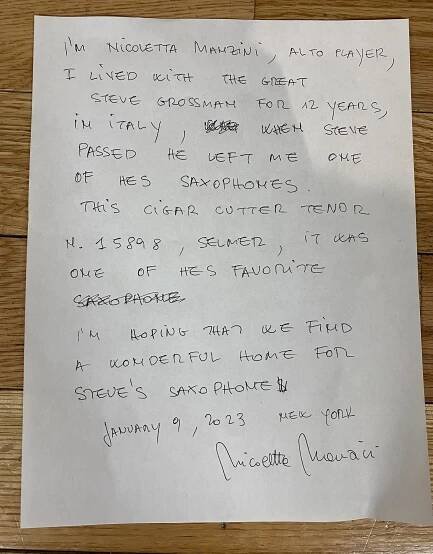 I'M NICOLETTA MANZINI, ALTO PLAYER,
I LIVED WITH THE GREAT
STEVE GROSSMAN FOR 12 YEARS,
IN ITALY, WHEN STEVE
PASSED HE LEFT ME ONE
OF HES SAXOPHONES.
THIS CIGAR CUTTER TENOR
N. 15898, SELMER, IT WAS
ONE OF HES FAVORITE
SAXOPHONE
I'M HOPING THAT WE FIND
A WONDERFUL HOME FOR
STEVE'S SAXOPHONE
JANUARY 9, 2023 NEW YORK
Nicoletta Manzini